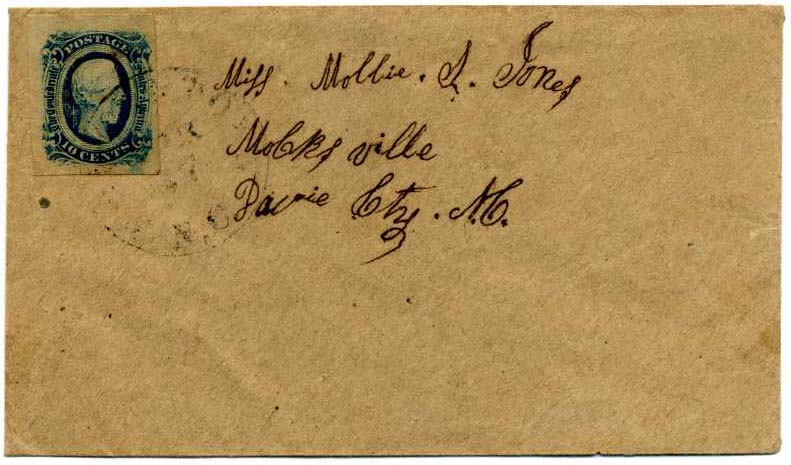 POSTAGE
The Confederate States of America
10 CENTS
Miss. Mollie. S. Jones
Mocksville
Davie Cty. N.C.
N.C.